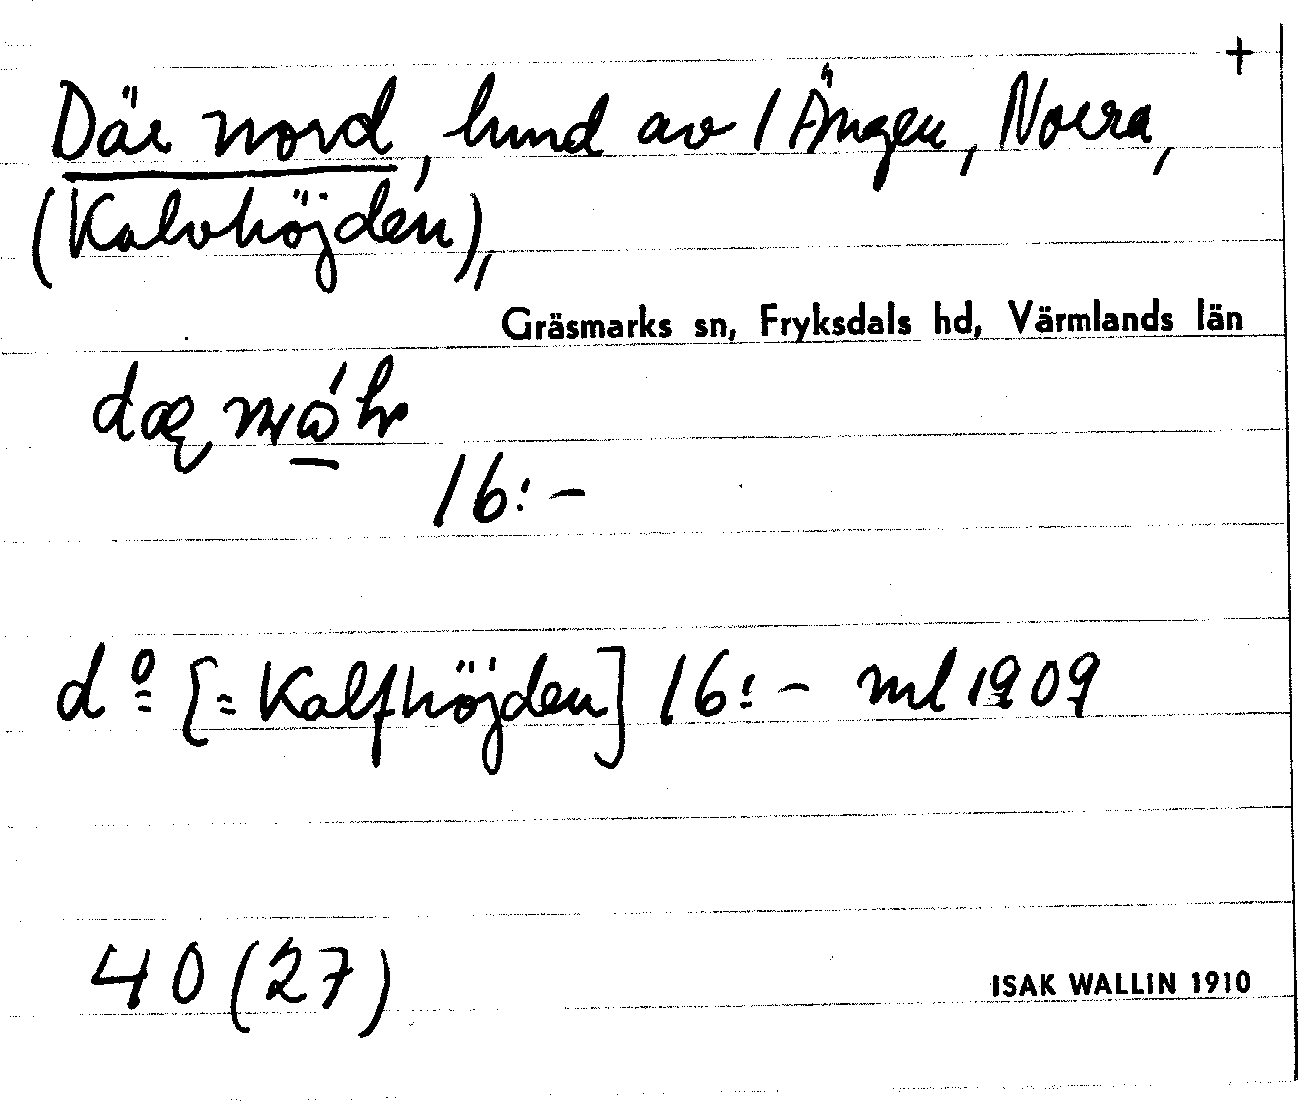 +
Där nord, hmd av 1 Ängen, Norra,
(Kalvhöjden),
Gräsmarks sn, Fryksdals hd, Värmlands län
16:-
dº [= Kalfhöjden] 16:- ml 1909
40 (27)
ISAK WALLIN 1910